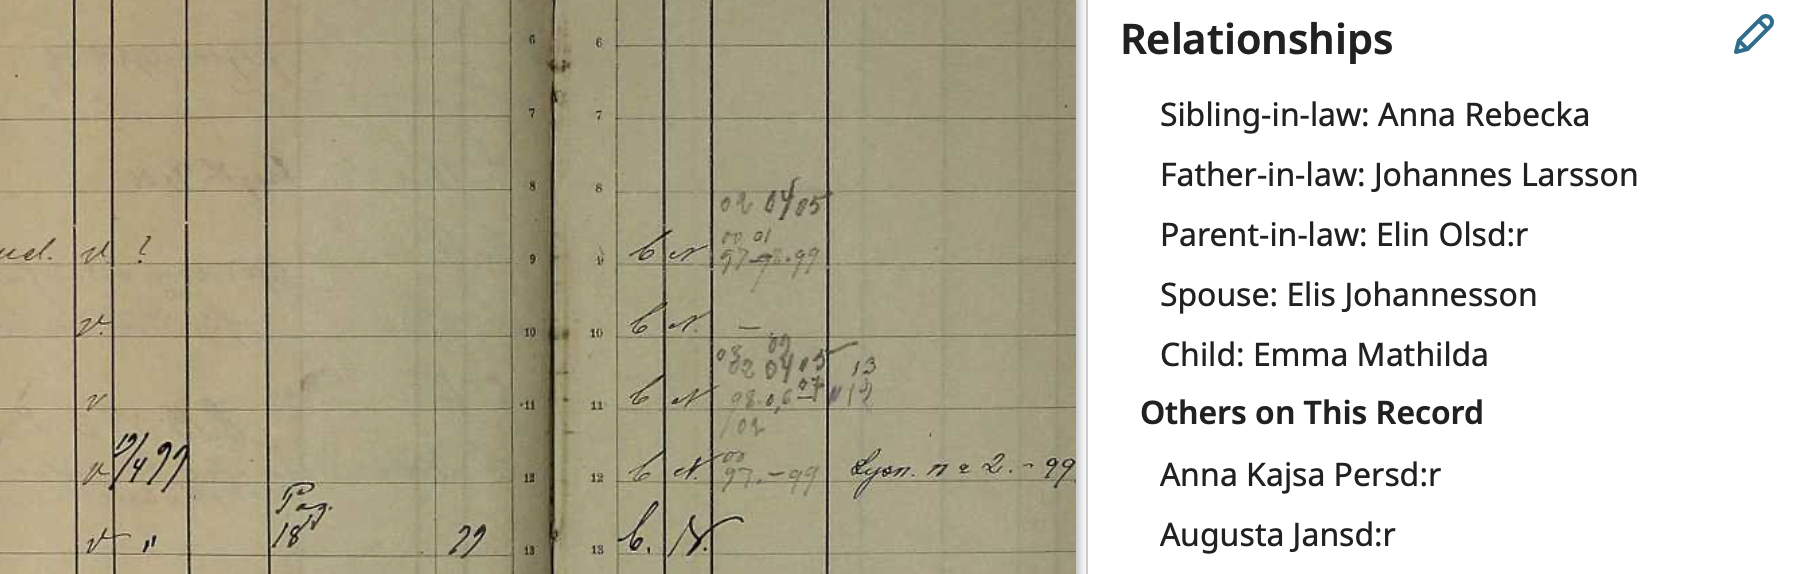 6 6
7 7
8 8
02 04 05
v. ? 9 9 b N 00 01
97-98-99
v. 10 10 b N. –
03 09
02 04 05 13
v 11 11 b N 98. 0,6 07 " 12
/02
v 19/4 99 12 12 b N. 00 97.-99 Lysn. n = 2. - 99
Pag.
v " 18 99 13 13 b. N.
Relationships
Sibling-in-law: Anna Rebecka
Father-in-law: Johannes Larsson
Parent-in-law: Elin Olsd:r
Spouse: Elis Johannesson
Child: Emma Mathilda
Others on This Record
Anna Kajsa Persd:r
Augusta Jansd:r